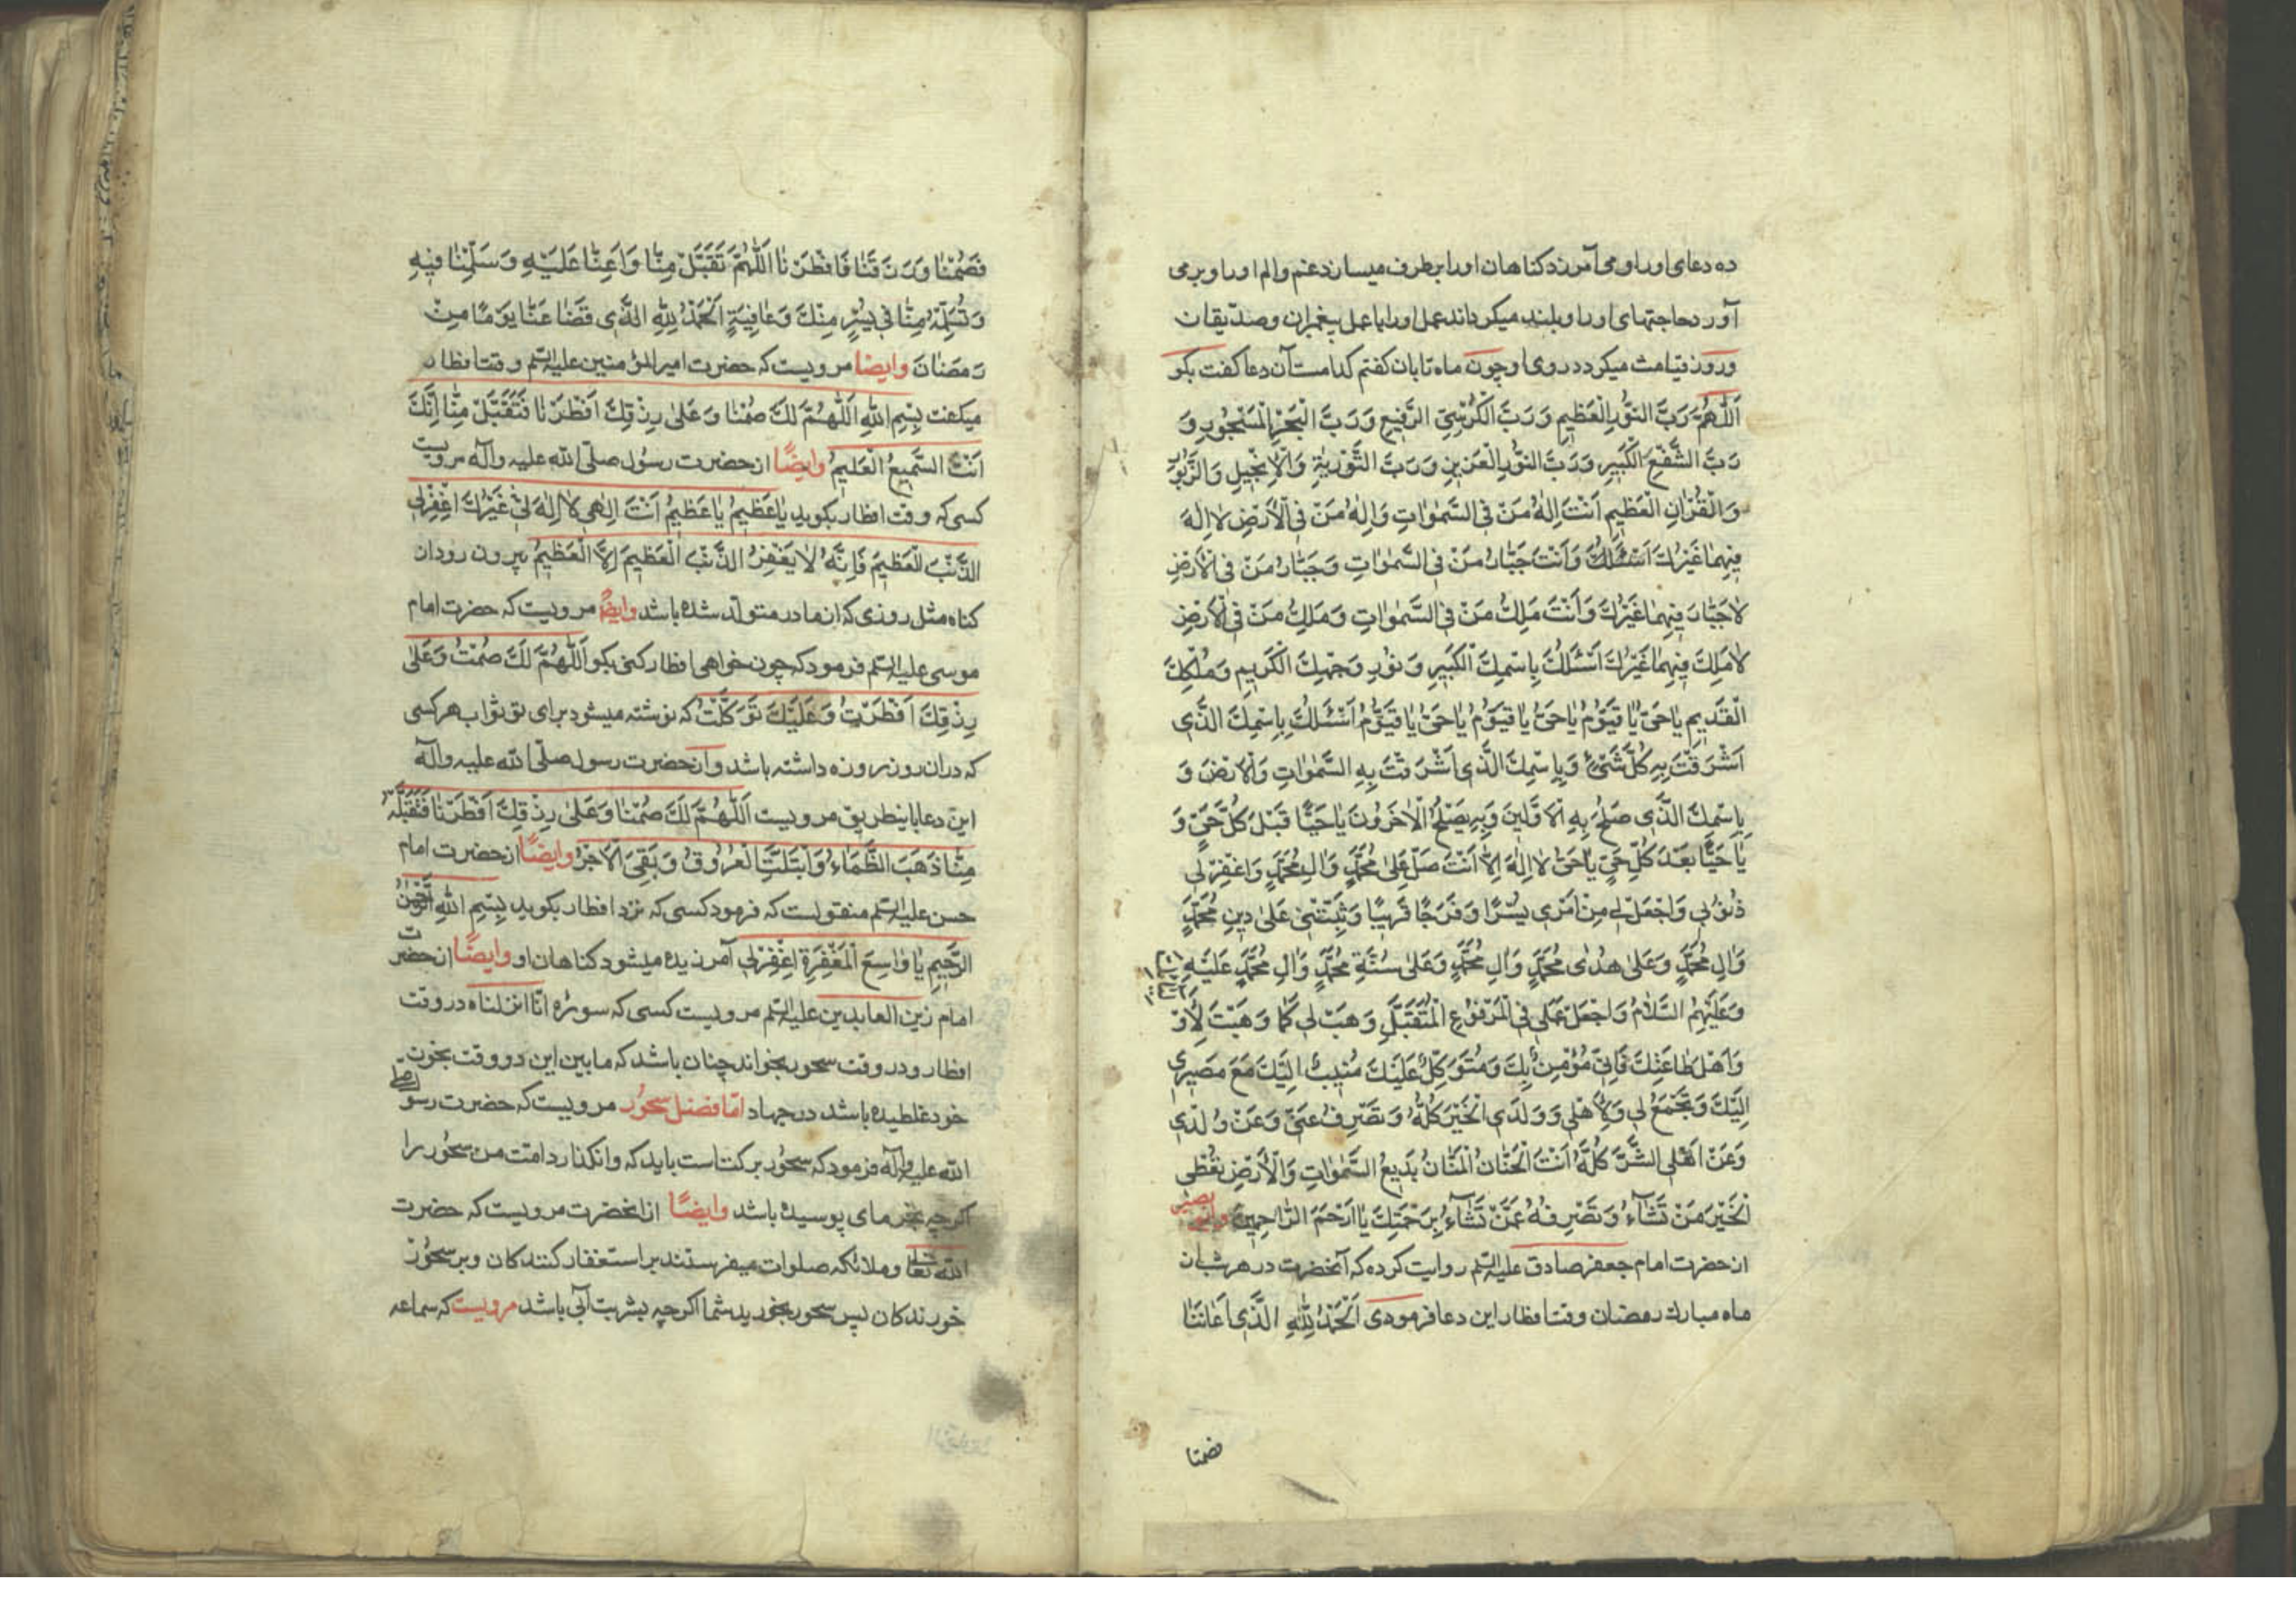 ده دعای اورا و می آمرزد کناهان اورا برطرف میسازد غم و الم اورا و برمی
آورد حاجتهای اورا و بلند میکرداند عمل اورا با عمل پیغمبران و صدّیقان
و روز قیامت میکردد روی او چون ماه تابان کفتم کدامست آن دعا کفت بکو
اَللّٰهُمَّ رَبَّ النُّورِ الْعَظیمِ وَ رَبَّ الْکُرْسِیِّ الرَّفیعِ وَ رَبَّ الْبَحْرِ الْمَسْجُورِ وَ
رَبَّ الشَّفْعِ الْکَبیرِ وَ رَبَّ النُّورِ الْعَزیزِ وَ رَبَّ التَّوْرٰیةِ وَ الْاِنْجیلِ وَ الزَّبُورِ
وَ الْقُرْاٰنِ الْعَظیمِ اَنْتَ اِلٰهُ مَنْ فِی السَّمٰوٰاتِ وَ اِلٰهُ مَنْ فِی الْاَرْضِ لٰا اِلٰهَ
فیهِمٰا غَیْرُكَ اَسْئَلُكَ وَ اَنْتَ جَبّٰارُ مَنْ فِی السَّمٰوٰاتِ وَ جَبّٰارُ مَنْ فِی الْاَرْضِ
لٰا جَبّٰارَ فیهِمٰا غَیْرُكَ وَ اَنْتَ مَلِكُ مَنْ فِی السَّمٰوٰاتِ وَ مَلِكُ مَنْ فِی الْاَرْضِ
لٰا مَلِكَ فیهِمٰا غَیْرُكَ اَسْئَلُكَ بِاسْمِكَ الْکَبیرِ وَ نُورِ وَجْهِكَ الْکَریمِ وَ مُلْکِكَ
الْقَدیمِ یٰا حَیُّ یٰا قَیُّومُ یٰا حَیُّ یٰا قَیُّومُ یٰا حَیُّ یٰا قَیُّومُ اَسْئَلُكَ بِاِسْمِكَ الَّذی
اَشْرَقَتْ بِهِ کُلُّ شَیْءٍ وَ بِاِسْمِكَ الَّذی اَشْرَقَتْ بِهِ السَّمٰوٰاتِ وَ الْاَرْضَ وَ
بِاسْمِكَ الَّذی صَلَحَ بِهِ الْاَوَّلینَ وَ بِهِ یَصْلَحُ الْاٰخَرُونَ یٰا حَیًّا قَبْلَ کُلِّ حَیٍّ وَ
یٰا حَیًّا بَعْدَ کُلِّ حَیٍّ یٰا حَیُّ لٰا اِلٰهَ اِلّٰا اَنْتَ صَلِّ عَلیٰ مُحَمَّدٍ وَ اٰلِ مُحَمَّدٍ وَ اغْفِرْلی
ذُنُوبی وَ اجْعَلْ لی مِنْ اَمْری یُسْرًا وَ فَرَجًا قَریبًا وَ ثَبِّتْنی عَلیٰ دینِ مُحَمَّدٍ
وَ اٰلِ مُحَمَّدٍ وَ عَلیٰ هُدٰی مُحَمَّدٍ وَ اٰلِ مُحَمَّدٍ وَ عَلیٰ سُنَّةِ مُحَمَّدٍ وَ اٰلِ مُحَمَّدٍ عَلَیْهِ
وَ عَلَیْهِمُ السَّلٰامُ وَ اجْعَلْ عَمَلی فِی الْمَرْفُوعِ الْمُتَقَبَّلِ وَ هَبْ لی کَمٰا وَهَبْتَ لِاَوْ
وَ اَهْلِ طٰاعَتِكَ فَاِنّی مُؤْمِنٌ بِكَ وَ مُتَوَکِّلٌ عَلَیْكَ مُنیبٌ اِلَیْكَ مَعَ مَصیری
اِلَیْكَ وَ تَجْمَعُ لی وَ لِاَهْلی وَ وَلَدی الْخَیْرَ کُلَّهُ وَ تَصْرِفُ عَنّی وَ عَنْ وُلْدی
وَ عَنْ اَهْلی الشَّرَّ کُلَّهُ اَنْتَ الْحَنّٰانُ الْمَنّٰانُ بَدیعُ السَّمٰوٰاتِ وَ الْاَرْضِ تُعْطی
الْخَیْرَ مَنْ تَشٰاءُ وَ تَصْرِفُهُ عَمَّنْ تَشٰاءُ بِرَحْمَتِكَ یٰا اَرْحَمَ الرّٰاحِمینَ
از حضرت امام جعفر صادق علیه السّلم روایت کرده که آنحضرت در هر شبان
ماه مبارك رمضان وقت افطار این دعا فرمودی اَلْحَمْدُ لِلّٰهِ الَّذی اَعٰانَنٰا
فصمنا
فَصُمْنٰا وَ رَزَقَنٰا فَافْطَرْنٰا اَللّٰهُمَّ تَقَبَّلْ مِنّٰا وَ اَعِنّٰا عَلَیْهِ وَ سَلِّمْنٰا فیهِ
وَ تُسَلِّمْهُ مِنّٰا فی یُسْرٍ مِنْكَ وَ عٰافِیَةٍ اَلْحَمْدُ لِلّٰهِ الَّذی قَضٰا عَنّٰا یَوْمًا مِنْ
رَمَضٰانَ وایضا مرویست که حضرت امیرالمؤمنین علیه السّلم وقت افطار
میکفت بِسْمِ اللّٰهِ اَللّٰهُمَّ لَكَ صُمْنٰا وَ عَلیٰ رِزْقِكَ اَفْطَرْنٰا فَتَقَبَّلْ مِنّٰا اِنَّكَ
اَنْتَ السَّمیعُ الْعَلیمُ وایضًا از حضرت رسول صلّی الله علیه و آله مرویست
کسی که وقت افطار بکوید یٰا عَظیمُ یٰا عَظیمُ اَنْتَ اِلٰهی لٰا اِلٰهَ لی غَیْرُكَ اغْفِرْلی
الذَّنْبَ الْعَظیمَ فَاِنَّهُ لٰا یَغْفِرُ الذَّنْبَ الْعَظیمَ اِلَّا الْعَظیمُ بیرون رود از
کناه مثل روزی که از مادر متولّد شده باشد وایضًا مرویست که حضرت امام
موسی علیه السّلم فرمود که چون خواهی افطار کنی بکو اَللّٰهُمَّ لَكَ صُمْتُ وَ عَلیٰ
رِزْقِكَ اَفْطَرْتُ وَ عَلَیْكَ تَوَکَّلْتُ که نوشته میشود برای تو ثواب هر کسی
که در ان روز روزه داشته باشد و از حضرت رسول صلّی الله علیه و آله
این دعا باینطریق مرویست اَللّٰهُمَّ لَكَ صُمْنٰا وَ عَلیٰ رِزْقِكَ اَفْطَرْنٰا فَتَقَبَّلْهُ
مِنّٰا ذَهَبَ الظَّمَاءُ وَ ابْتَلَّتِ الْعُرُوقُ وَ بَقِیَ الْاَجْرُ وایضًا از حضرت امام
حسن علیه السّلم منقولست که فرمود کسی که نزد افطار بکوید بِسْمِ اللّٰهِ الرَّحْمٰنِ
الرَّحیمِ یٰا وٰاسِعَ الْمَغْفِرَةِ اِغْفِرْلی آمرزیده میشود کناهان او وایضًا از حضرت
امام زین العابدین علیه السّلم مرویست کسی که سورۀ انّا انزلناه در وقت
افطار و در وقت سحور بخواند چنان باشد که ما بین این دو وقت بخون
خود غلطیده باشد در جهاد امّا فضل سحُور مرویست که حضرت رسول صلی
الله علیه و آله فرمود که سحُور برکتاست باید که وانکذارد امت من سحُور را
اکرچه بخرمای پوسیده باشد وایضًا از انحضرت مرویست که حضرت
الله تعالی و ملائکه صلوات میفرستند بر استغفار کنندکان و بر سحُور
خورندکان پس سحور بخورید شما اکرچه بشربت آبی باشد مرویست که سماعه